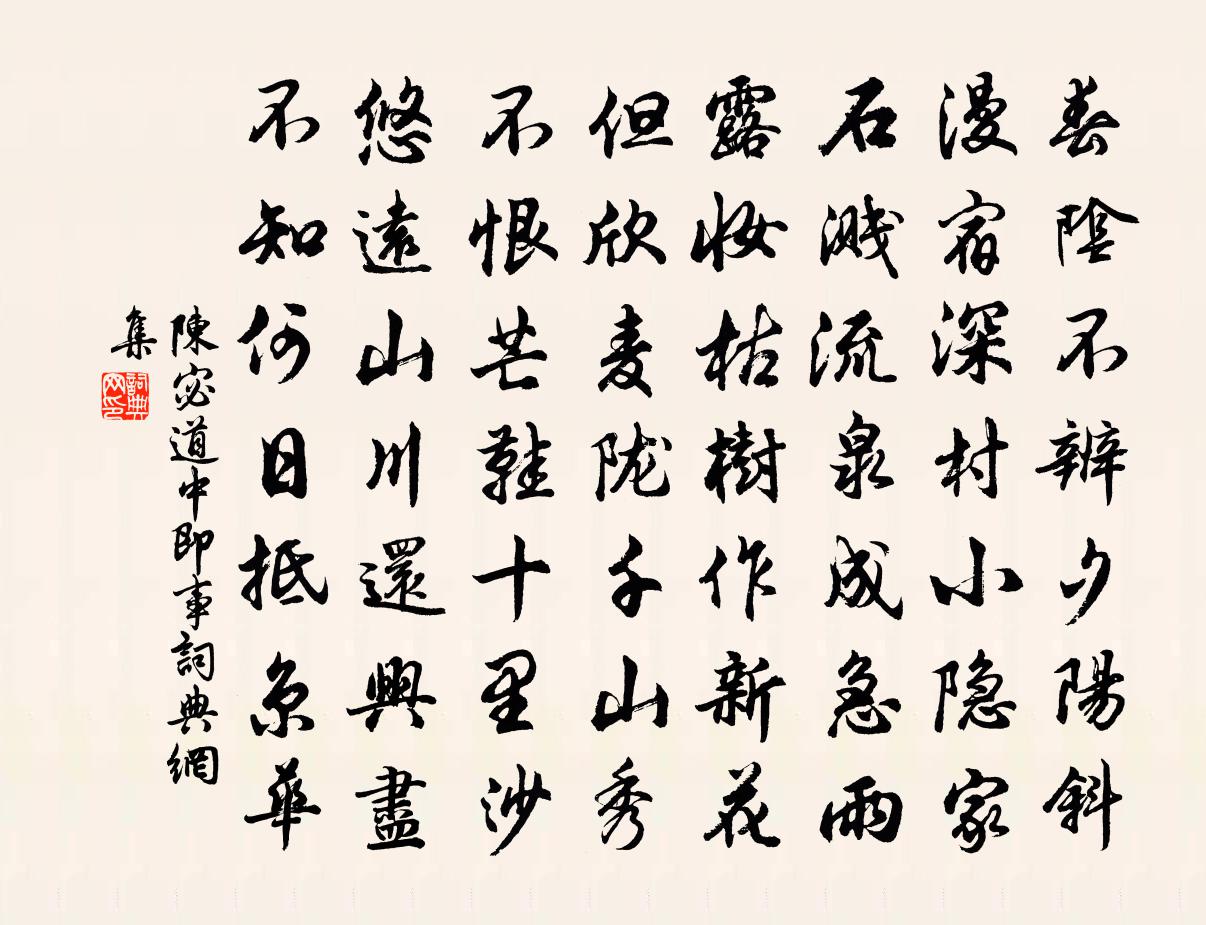 春陰不辨夕陽斜
漫宿深村小隐家
石溅流泉成急雨
露妝枯樹作新花
但欣麦陇千山秀
不恨芒鞋十里沙
悠遠山川還興盡
不知何日抵京華
陳宓道中即事詞典網
集
詞典网印